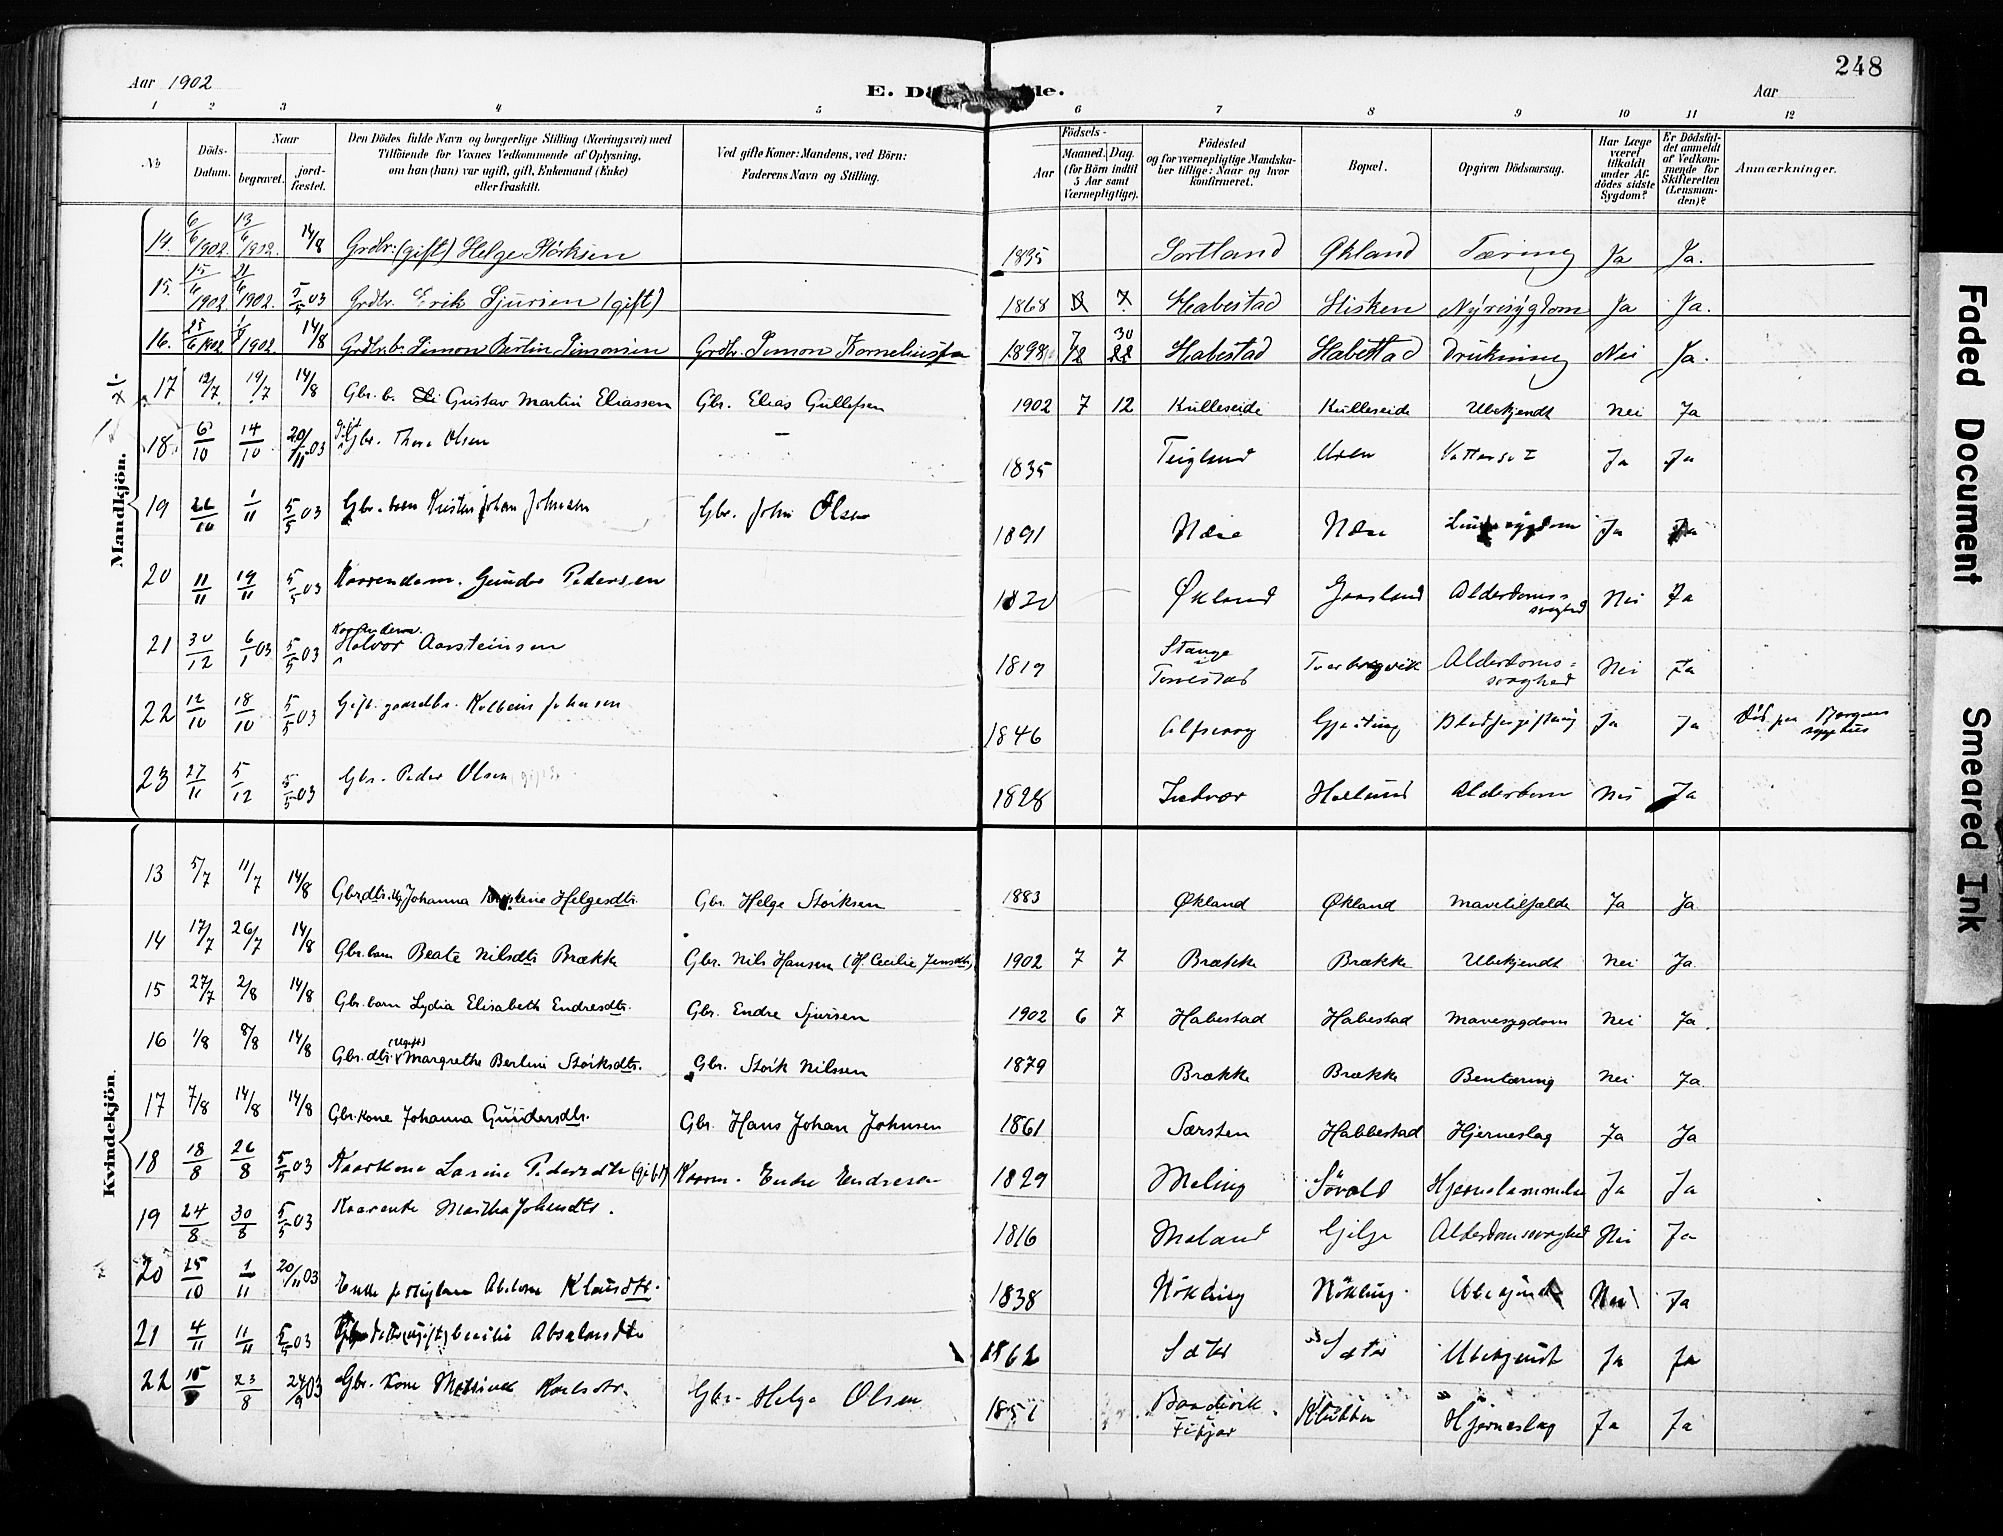 Aar 1902
E. Dö de.
Aar
248
1 2 3 4 5 6 7 8 9 10 11 12
No
Döds-Datum.
Naar
begravet.
jord-fæstet.
Den Dödes fulde Navn og borgerlige Stilling (Næringsvei) med
Tilföiende for Voxnes Vedkommende af Oplysning,
om han (hun) var ugift, gift, Enkemand (Enke)
eller fraskilt.
Ved gifte Koner: Mandens, ved Börn:
Faderens Navn og Stilling.
Födsels-
Aar
Maaned. Dag.
(for Börn indtil
5 Aar samt
Værnepligtige).
Födested
og for værnepligtige Mandska-
ber tillige: Naar og hvor
konfirmeret.
Bopæl.
Opgiven Dödsaarsag.
Har Læge
været
tilkaldt
under Af-
dödes sidste
Sygdom?
Er Dödsfal-
det anmeldt
af Vedkom-
mende for
Skifteretten
(Lensman-
den)?
Anmærkninger.
Mandkjön.
14. 6/6 1902. 13/6 1902. 14/8 Grdbr. (gift) Helge Störksen 1835 Sortland Økland Tæring Ja Ja.
15. 15/6 1902 21/6 1902. 5/5 03 Grdbr. Erik Sjursen (gift) 1868 7 Habestad Hisken Nyresygdom Ja Ja.
16. 25/6 1902 1902. 14/8 Grdbr. b. Simon Bertin Simonsen Grdbr. Simon Kornelius 1898 30 Habestad Habestad Drukning Nei Ja.
17 12/7 19/7 14/8 Gbr. b. Gustav Martin Eliassen Gbr. Elias Gullefsen 1902 7 12 Kulleseide Kulleseide Ubekjendt Nei Ja
18 6/10 14/10 20/11 03 gift Gbr. Thore Olsen — 1835 Teigland Uren Vattersot Ja Ja
19 26/10 1/11 5/5 03 Gbr. barn Kristen Johan Johnsen Gbr. John Olsen 1891 Næse Næse Ja Ja
20 11/11 19/11 5/5 03 Gunder Pedersen 1820 Økland Alderdoms-
svaghed Nei Ja
21 30/12 6/1 03 5/5 03 Halvor Aarsteinsen 1819 Stange Alderdoms-
svaghed Nei Ja
22 12/10 18/10 5/5 03 Gift gaardbr. Kolbein Johnsen 1846 Blodforgiftning Ja Ja Död paa Bergens
sygehus
23 27/11 5/12 5/5 03 Gbr. Peder Olsen gift 1828 Indvær Alderdom Nei Ja
Kvindekjön.
13 5/7 11/7 14/8 Gbr.dtr. Johanna Helgesdtr. Gbr. Helge Störksen 1883 Økland Økland Mavetilfælde Ja Ja
14 17/7 26/7 14/8 Gbr. barn Beate Nilsdtr Brække Gbr. Nils Hansen (H Cecilie Jensdtr) 1902 7 7 Brække Brække Ubekjendt Nei Ja
15 27/7 2/8 14/8 Gbr. barn Lydia Elisabeth Endresdtr. Gbr. Endre Sjursen 1902 6 7 Habestad Habestad Mavesygdom Nei Ja.
16 1/8 8/8 14/8 Gbr. dtr (Ugift) Margrethe Berlini Störksdtr. Gbr. Störk Nilssen 1879 Brække Brække Bentæring Nei Ja
17 7/8 14/8 14/8 Gbr. kone Johanna Gundersdtr. Gbr. Hans Johan Johnsen 1861 Særsten Habbestad Hjerneslag Ja Ja
18 18/8 26/8 5/5 03 Kaarkone Larine Pedersdtr (gift) Kaarm. Endre Endresen 1829 Meling Sövold Hjernelammelse Ja Ja
19 24/8 30/8 5/5 03 Kaarenke Martha Johnsdtr. 1816 Meland Gjilje Alderdomssvaghed Nei Ja
20 25/10 1/11 20/11 03 Enke Klausdtr. 1838 Nökling Nökling Ubekjendt Nei Ja
21 4/11 11/11 5/5 03 (ugift) Cecilie Absalonsdtr 1862 Sæter Sæter Ubekjendt Ja Ja
22 15 23/8 24/9 03 Gbr. kone Karlsdtr. Gbr. Helge Olsen 1851 Fitjar Klubben Hjerneslag Ja Ja
Faded Document
Smeared Ink